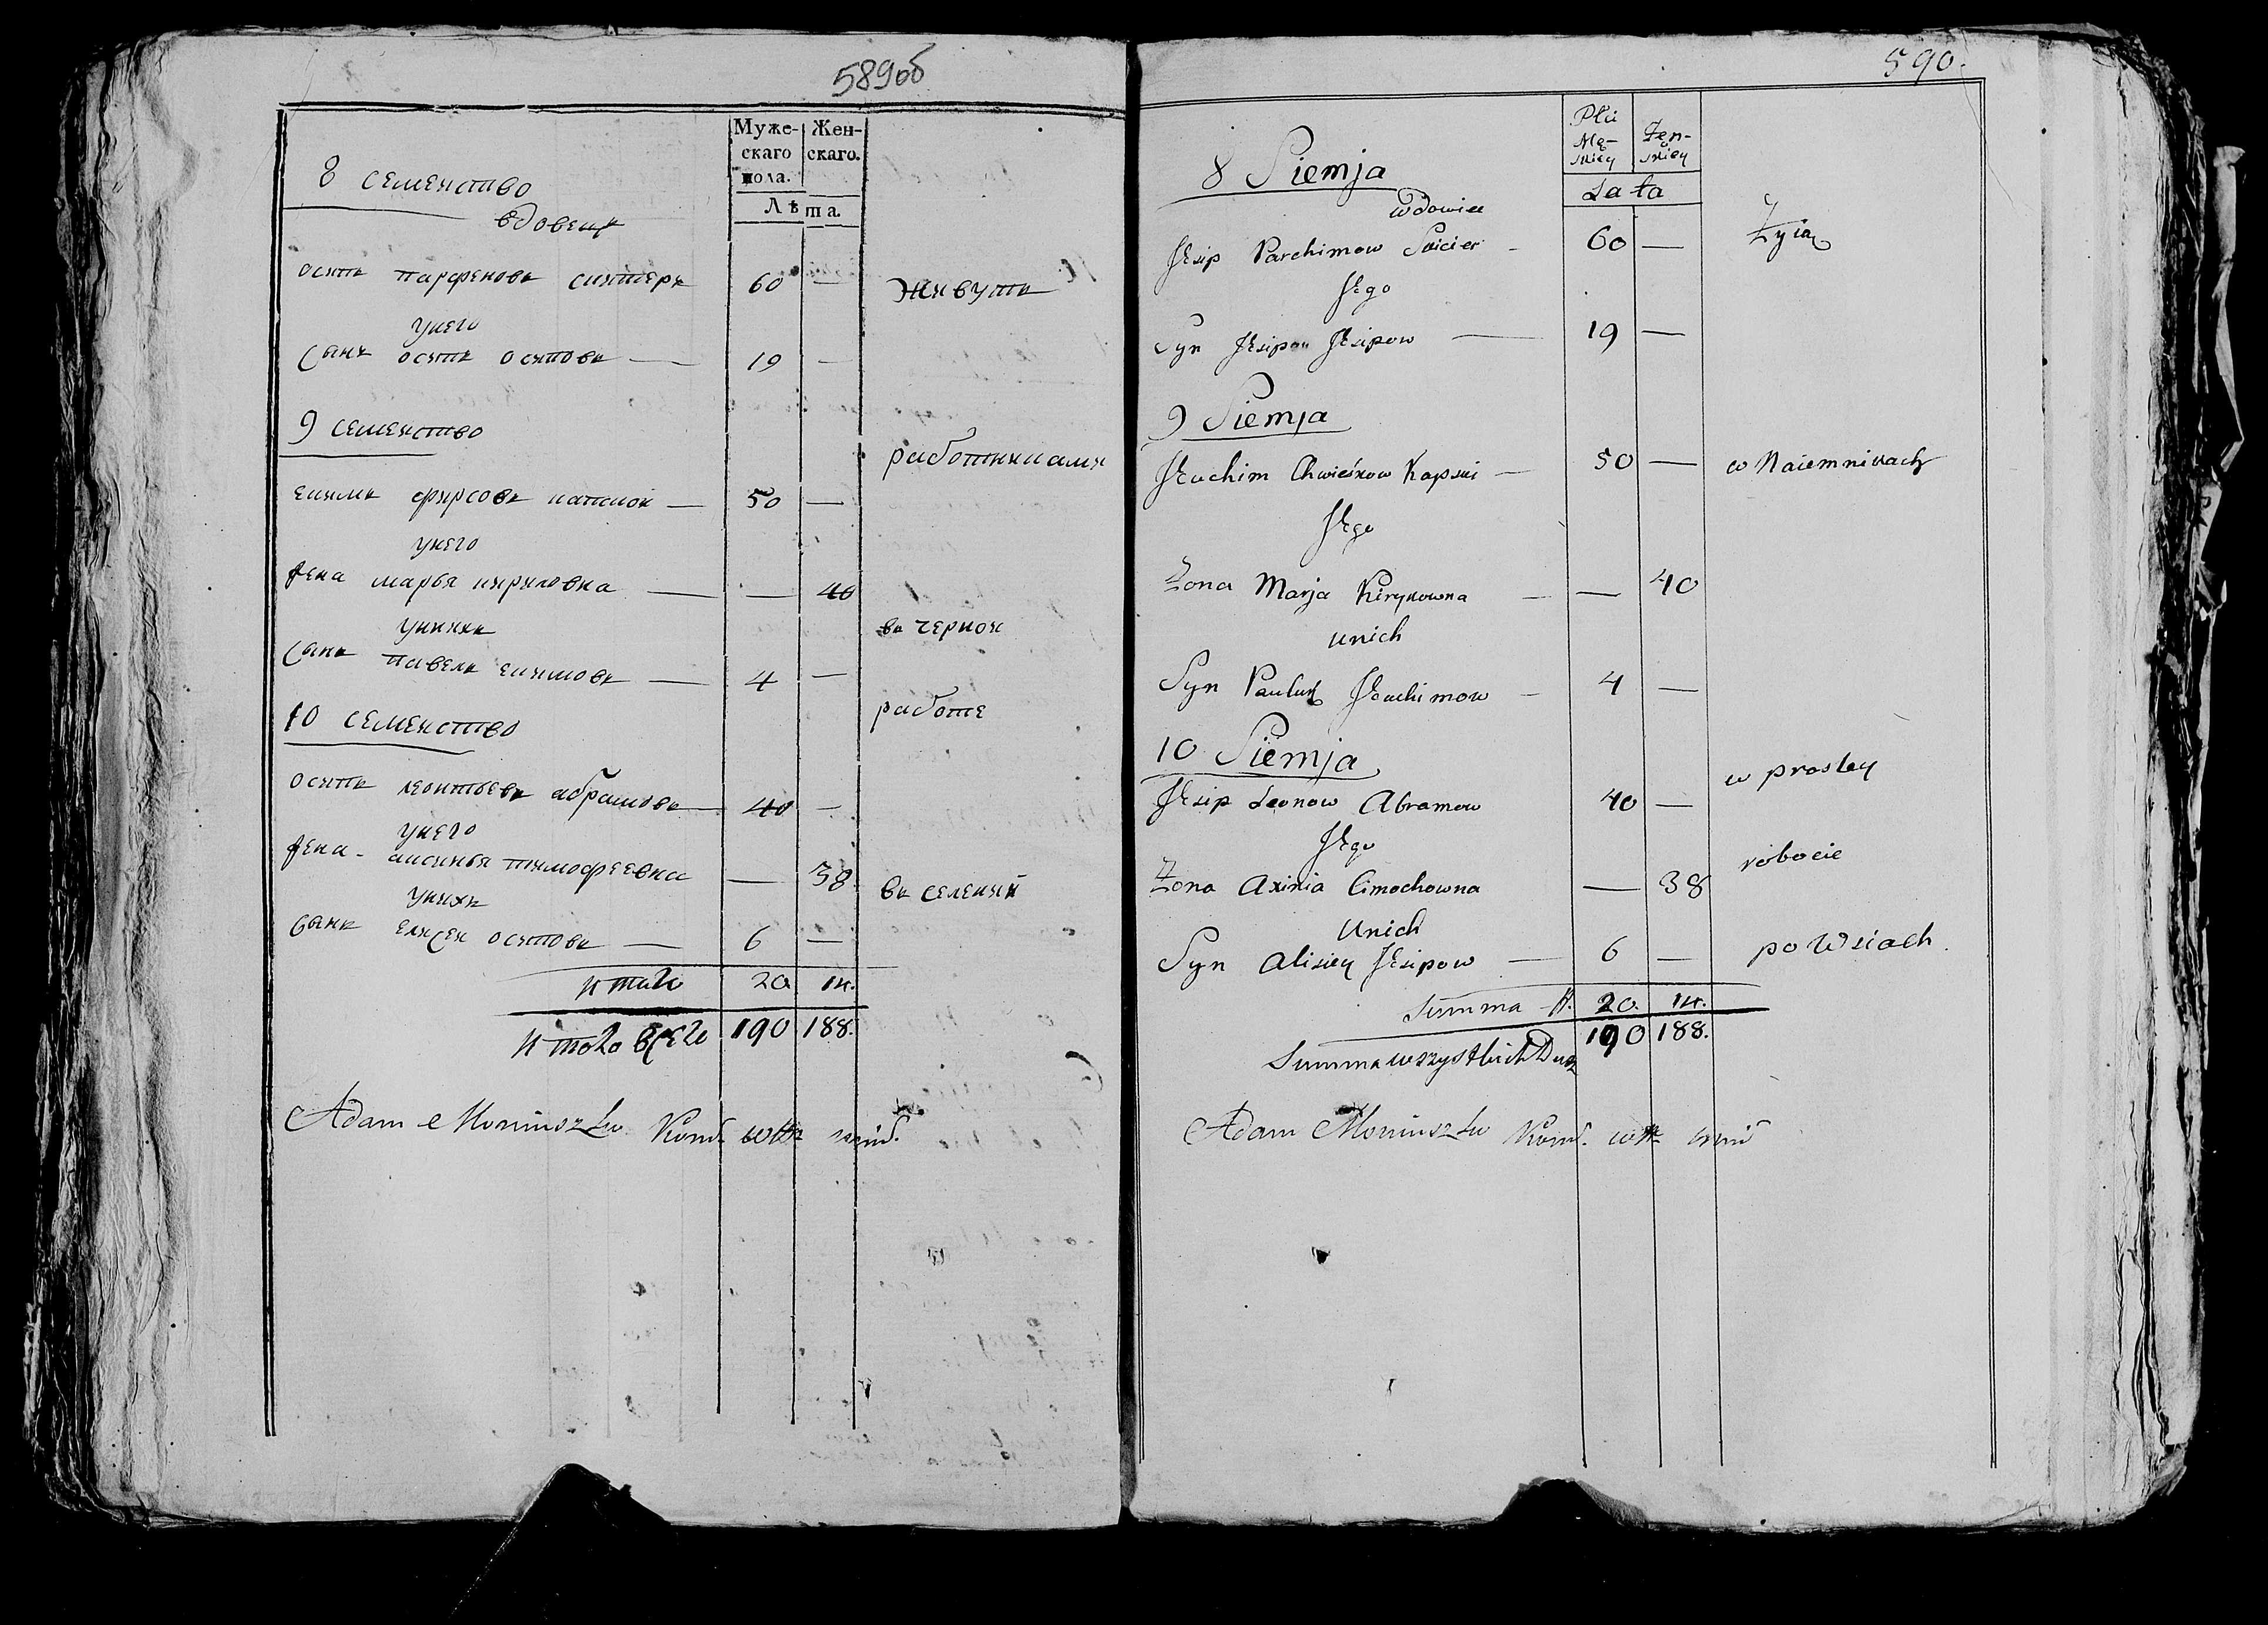 589об
Муже- Жен-
скаго скаго.
пола.
Лѣта.
8 семейство
вдовецъ
осипъ парфеновъ 60 — живутъ
унего
сынъ осипъ осиповъ — 19 —
9 семейство
работниками
екимъ фирсовъ — 50 —
унего
жена марья кириловна — — 40
унихъ въ черной
сынъ павелъ екимовъ — 4 —
10 семейство работе
осипъ леонтьевъ абрамовъ — 40 —
унего
жена - аксинья тимофеевна — 38 въ селений
унихъ
сынъ елисей осиповъ — 6 —
итого 20 14.
итого всего 190 188.
Adam Moniuszko
590.
Płci
Mę- Żeń-
skiey skiey
Lata
8 Siemja
wdowiec
Jesip Parchimow 60 — Żyią
Jego
Syn Jesip Jesipow — 19 —
9 Siemja
Jeachim Chwieśkow Kapski — 50 — w Naiemnikach
Jego
Żona Marja Kirykowna — — 40
unich
Syn Pauluk Jeachimow — 4 —
10 Siemja
w prostey
Jesip Leonow Abramow 40 —
Jego
robocie
Żona Axinia Cimochowna — 38
Unich
Syn Alisiey Jesipow — 6 — po Wsiach.
Summa 20. 14.
190 188.
Summa wszystkich Dusz
Adam Moniuszko